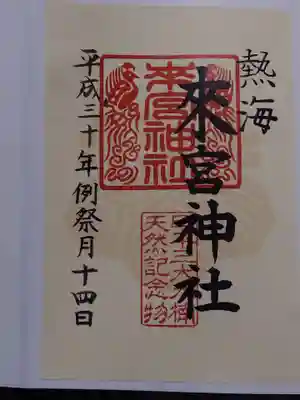 熱海
來宮神社
平成三十年例祭月十四日
來宮神社
天然記念物